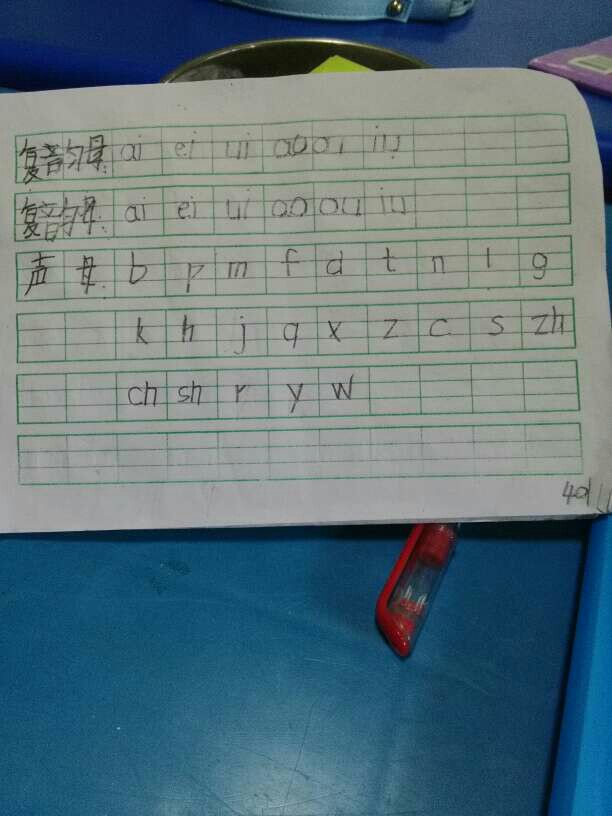 复音匀母: ai ei ui ao ou iu
复音匀母: ai ei ui ao ou iu
声母 b p m f d t n l g
k h j q x z c s zh
ch sh r y w